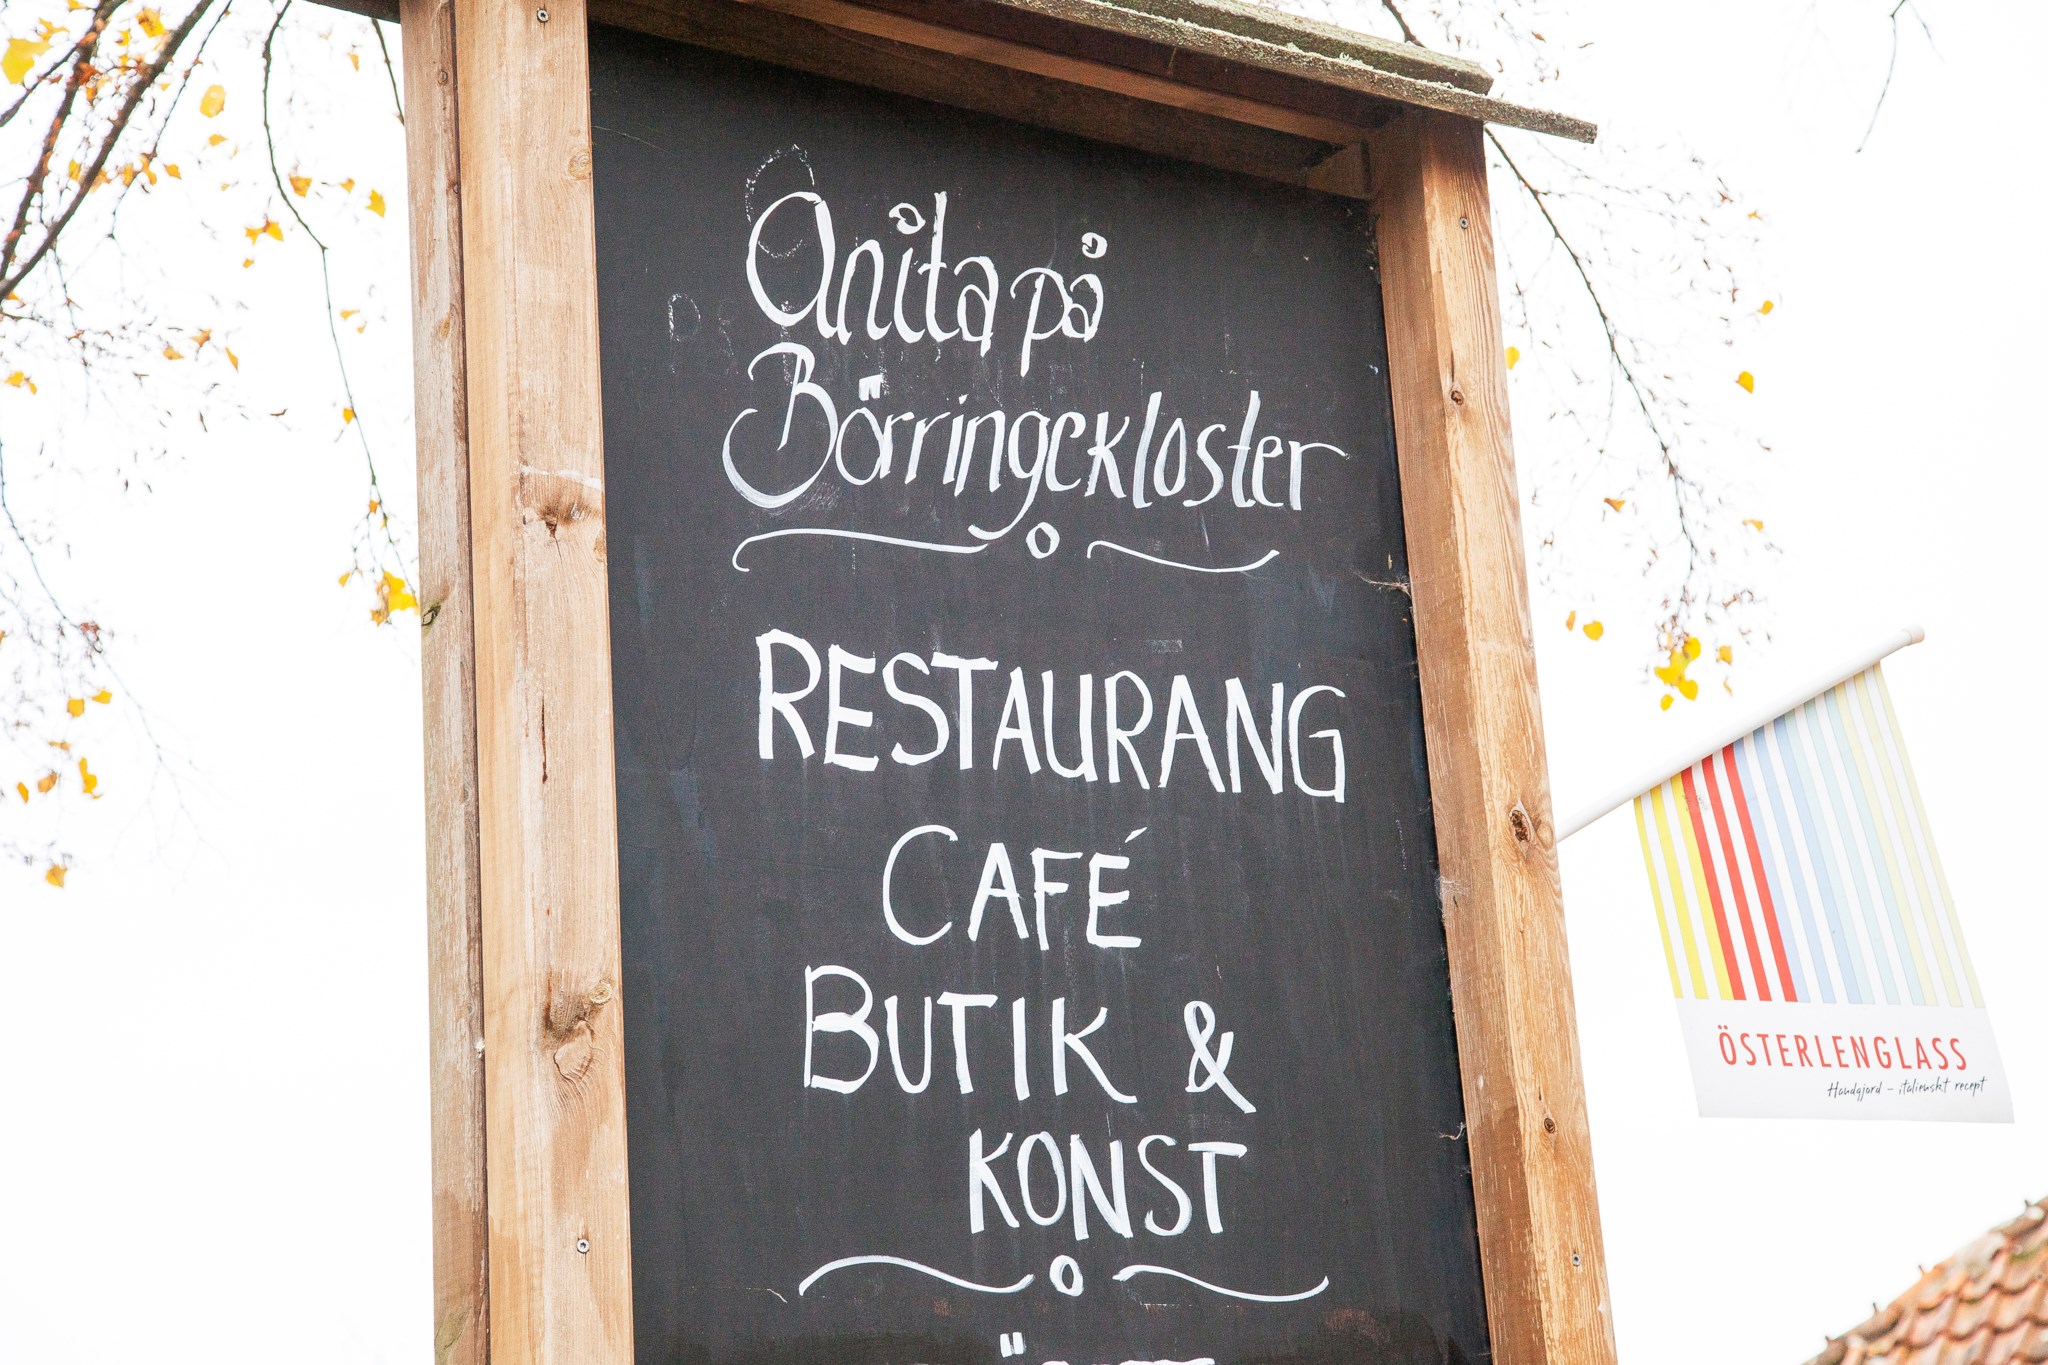 Anita på
Börringekloster
RESTAURANG
CAFÉ
BUTIK &
KONST
ÖSTERLENGLASS
Handgjord – italienskt recept